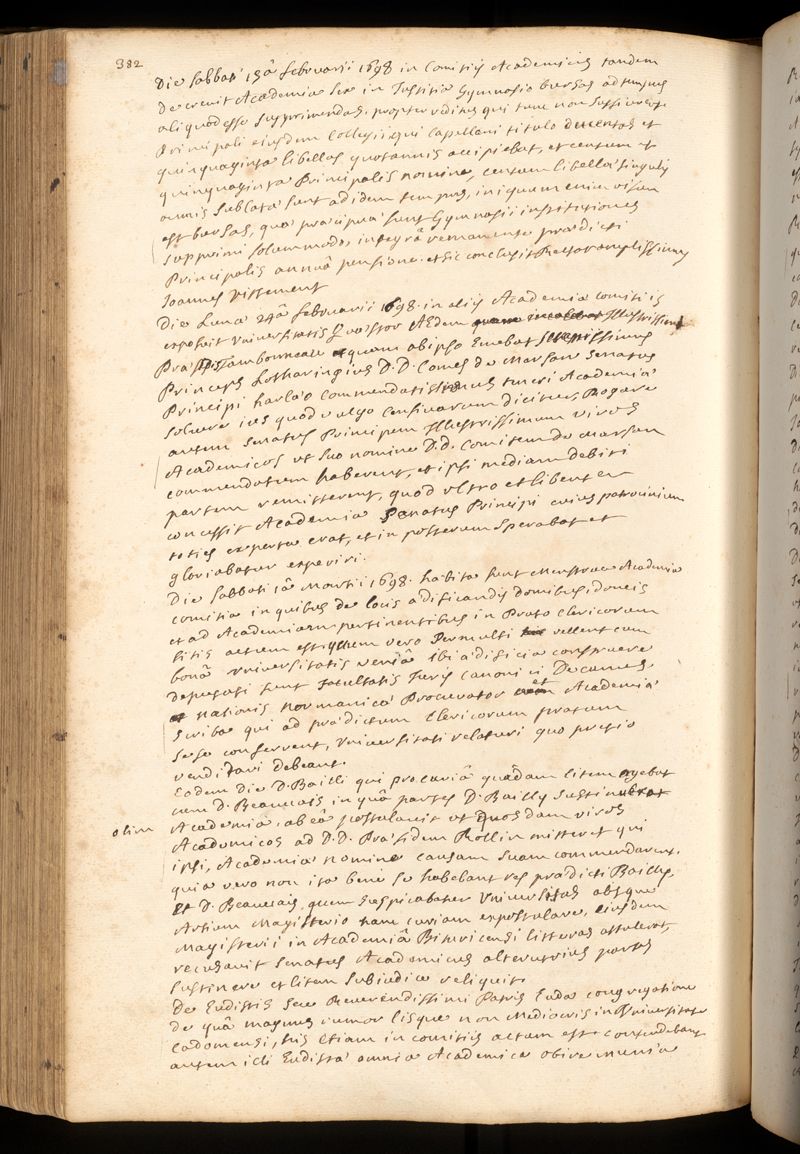 382
Die Sabbati 15â februarii 1698 in Comitiis Academicis tandem
decrevit Academia sex in Justitiæ Gymnasio bursas ad tempus
aliquod esse supprimendas, propter reditus qui tunc non sufficerent
Principali eiusdem Collegii qui Capellani titulo ducentas et
quinquaginta libellas quotannis accipiebat, et centum et
quinquaginta Principalis nomine, centum libellæ singulis
annis sublatæ sunt ad idem tempus, iniquum enim visum
est bursas, quæ præcipuæ sunt Gymnasii institutiones
supprimi solummodo, integrâ remanente prædicti
Principalis annuâ pensione. et sic conclusit Rector amplissimus
Joannes Vittement
Die Lunæ 24â februarii 1698. in aliis Academiæ comitiis
exposuit Universitatis Quæstor Ædem Illustrissimi
Præsidis Tambonneau quam ab ipso Emebat Serenissimus
Princeps Lotharingius D.D. Comes de Marsan Senatus
Principi harlæo commendatissimus turcri Academiæ
solvere ius quod vulgo censivarum dicitur, Rogare
autem Senatus Principem Illustrissimum viros
Academicos ut suo nomine D.D. Comitem de Marsan
commendatum haberent, et ipsi mediam debiti
partem remitterent, quod ultro et libenter
concessit Academia Senatus Principi cuius patrocinium
toties experta erat, et in posterum sperabat et
gloriabatur experiri.
Die Sabbati 1â Martii 1698. habita sunt Menstrua Academiæ
comitia in quibus de locis ædificandis domibus idoneis
et ad Academiam pertinentibus in Prato Clericorum
sitis actum est, quum vero Permulti vellent cum
bonâ Universitatis veniâ ibi ædificia construere
deputati sunt facultatis Juris canonici Decanus
nationis normanicæ Procurator et Academiæ
Scriba qui ad prædictum Clericorum pratum
sese conferrent, Universitati relaturi quo pretio
venditari debeant.
Eodem die D. Bailli qui pro curiâ quâdam litem agebat
cum D. Beauvais in quâ partes D. Bailly sustinebat
olim Academia, ab eâ postulavit ut quosdam viros
Academicos ad D.D. Præsidem Rollin mitteret qui
ipsi, Academiæ nomine causam suam commendarent.
quia vero non ita bene se habebant res prædicti Bailly,
Et D. Beauvais, quem suspicabatur Universitas absque
Artium Magisterio hanc curiam expostulare, eiusdem
Magisterii in Academiâ Bituricensi litteras attulerat,
recusavit Senatus Academicus alterutrius partes
sustinere et litem sub iudice reliquit.
De Eudistis seu Reverendissimi Patris Eudæ congregatione
de quâ magnus rumor lisque non mediocris in Universitate
Cadomensi, his etiam in comitiis actum est. contendebant
autem illi Eudistæ omnia Academica obire munia